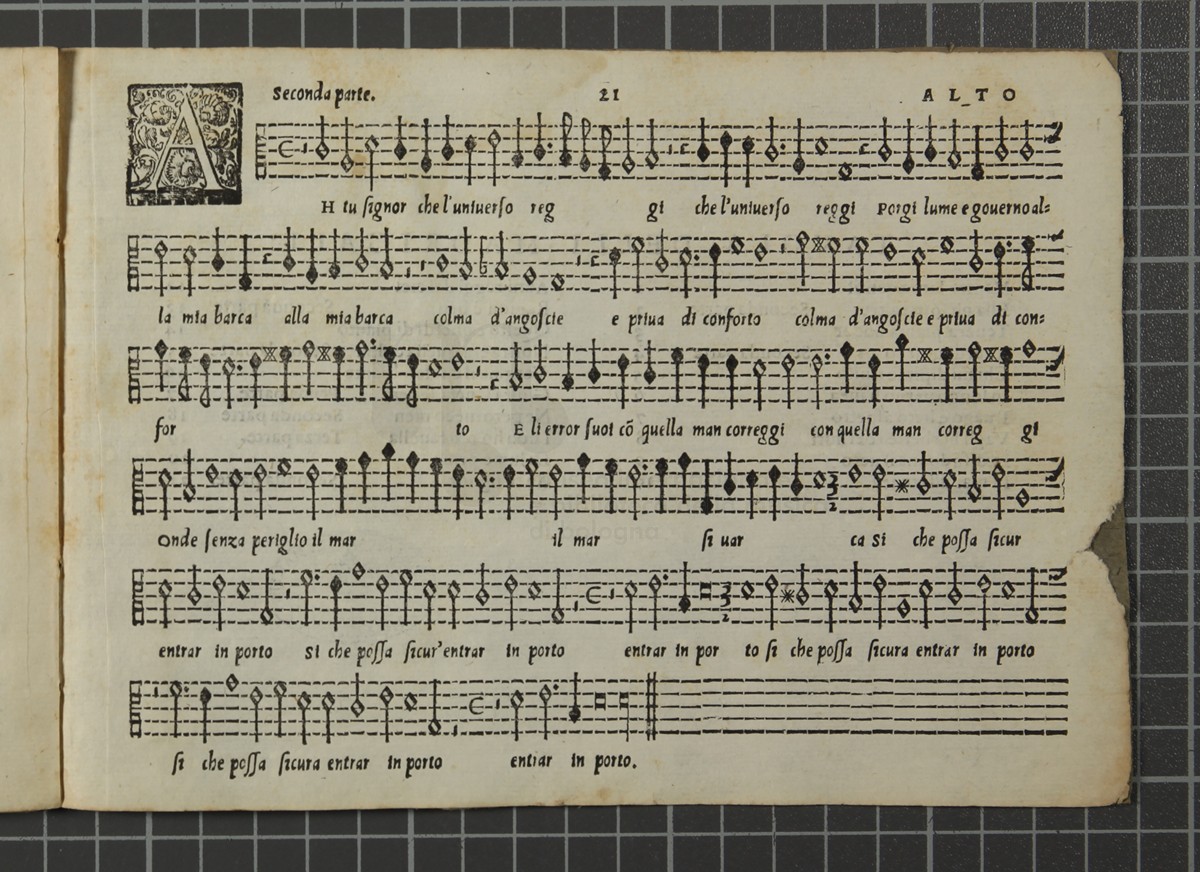 Seconda parte. 21 ALTO
AH tu ſignor che l'uniuerſo reg gi che l'uniuerſo reggi Porgi lume e gouerno al=
la mia barca alla mia barca colma d'angoſcie e priua di conforto colma d'angoſcie e priua di con=
for to E li error ſuoi cō quella man correggi con quella man correg gi
Onde ſenza periglio il mar il mar ſi uar ca Si che poſſa ſicur
entrar in porto Si che poſſa ſicur'entrar in porto entrar in por to ſi che poſſa ſicura entrar in porto
ſi che poſſa ſicura entrar in porto entrar in porto.